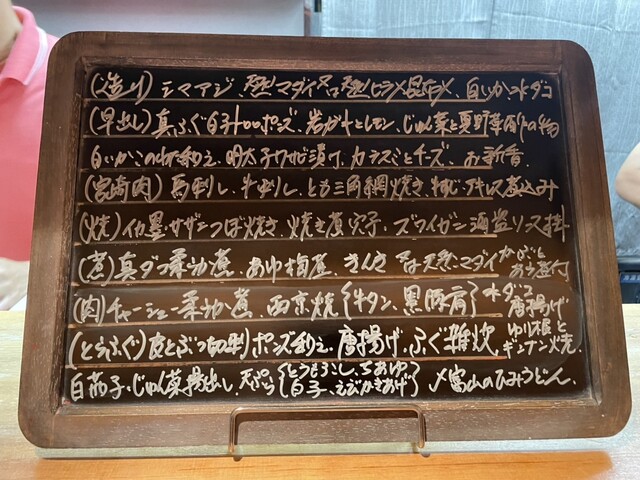 (造り) シマアジ 天然マダイ 天然ヒラメ昆布〆、白いか、水ダコ
(早出し) 真ふぐ白子ポンズ、岩ガキとレモン、じゅん菜と夏野菜酢の物
白いかこのわた和え、明太子ワサビ漬け、カラスミとチーズ、お新香
(宮崎肉) 馬刺し、牛刺し、とも三角網焼き、すじアキレス煮込み
(焼) イカ墨サザエつぼ焼き、焼き煮穴子、ズワイガニ酒盗ソース掛
(煮) 真ダコ柔か煮、あゆ梅煮、天然マダイかぶと
(肉) チャーシュー柔か煮、西京焼{牛タン、黒豚肩} 水ダコ唐揚げ
(とらふぐ) 皮とぶつ切刺ポンズ和え、唐揚げ、ふぐ雑炊、ギンナン焼
白茄子、じゅん菜揚出し、天ぷら{とうもろこし、ちあゆ、白子、えびかきあげ} 〆富山のひみうどん